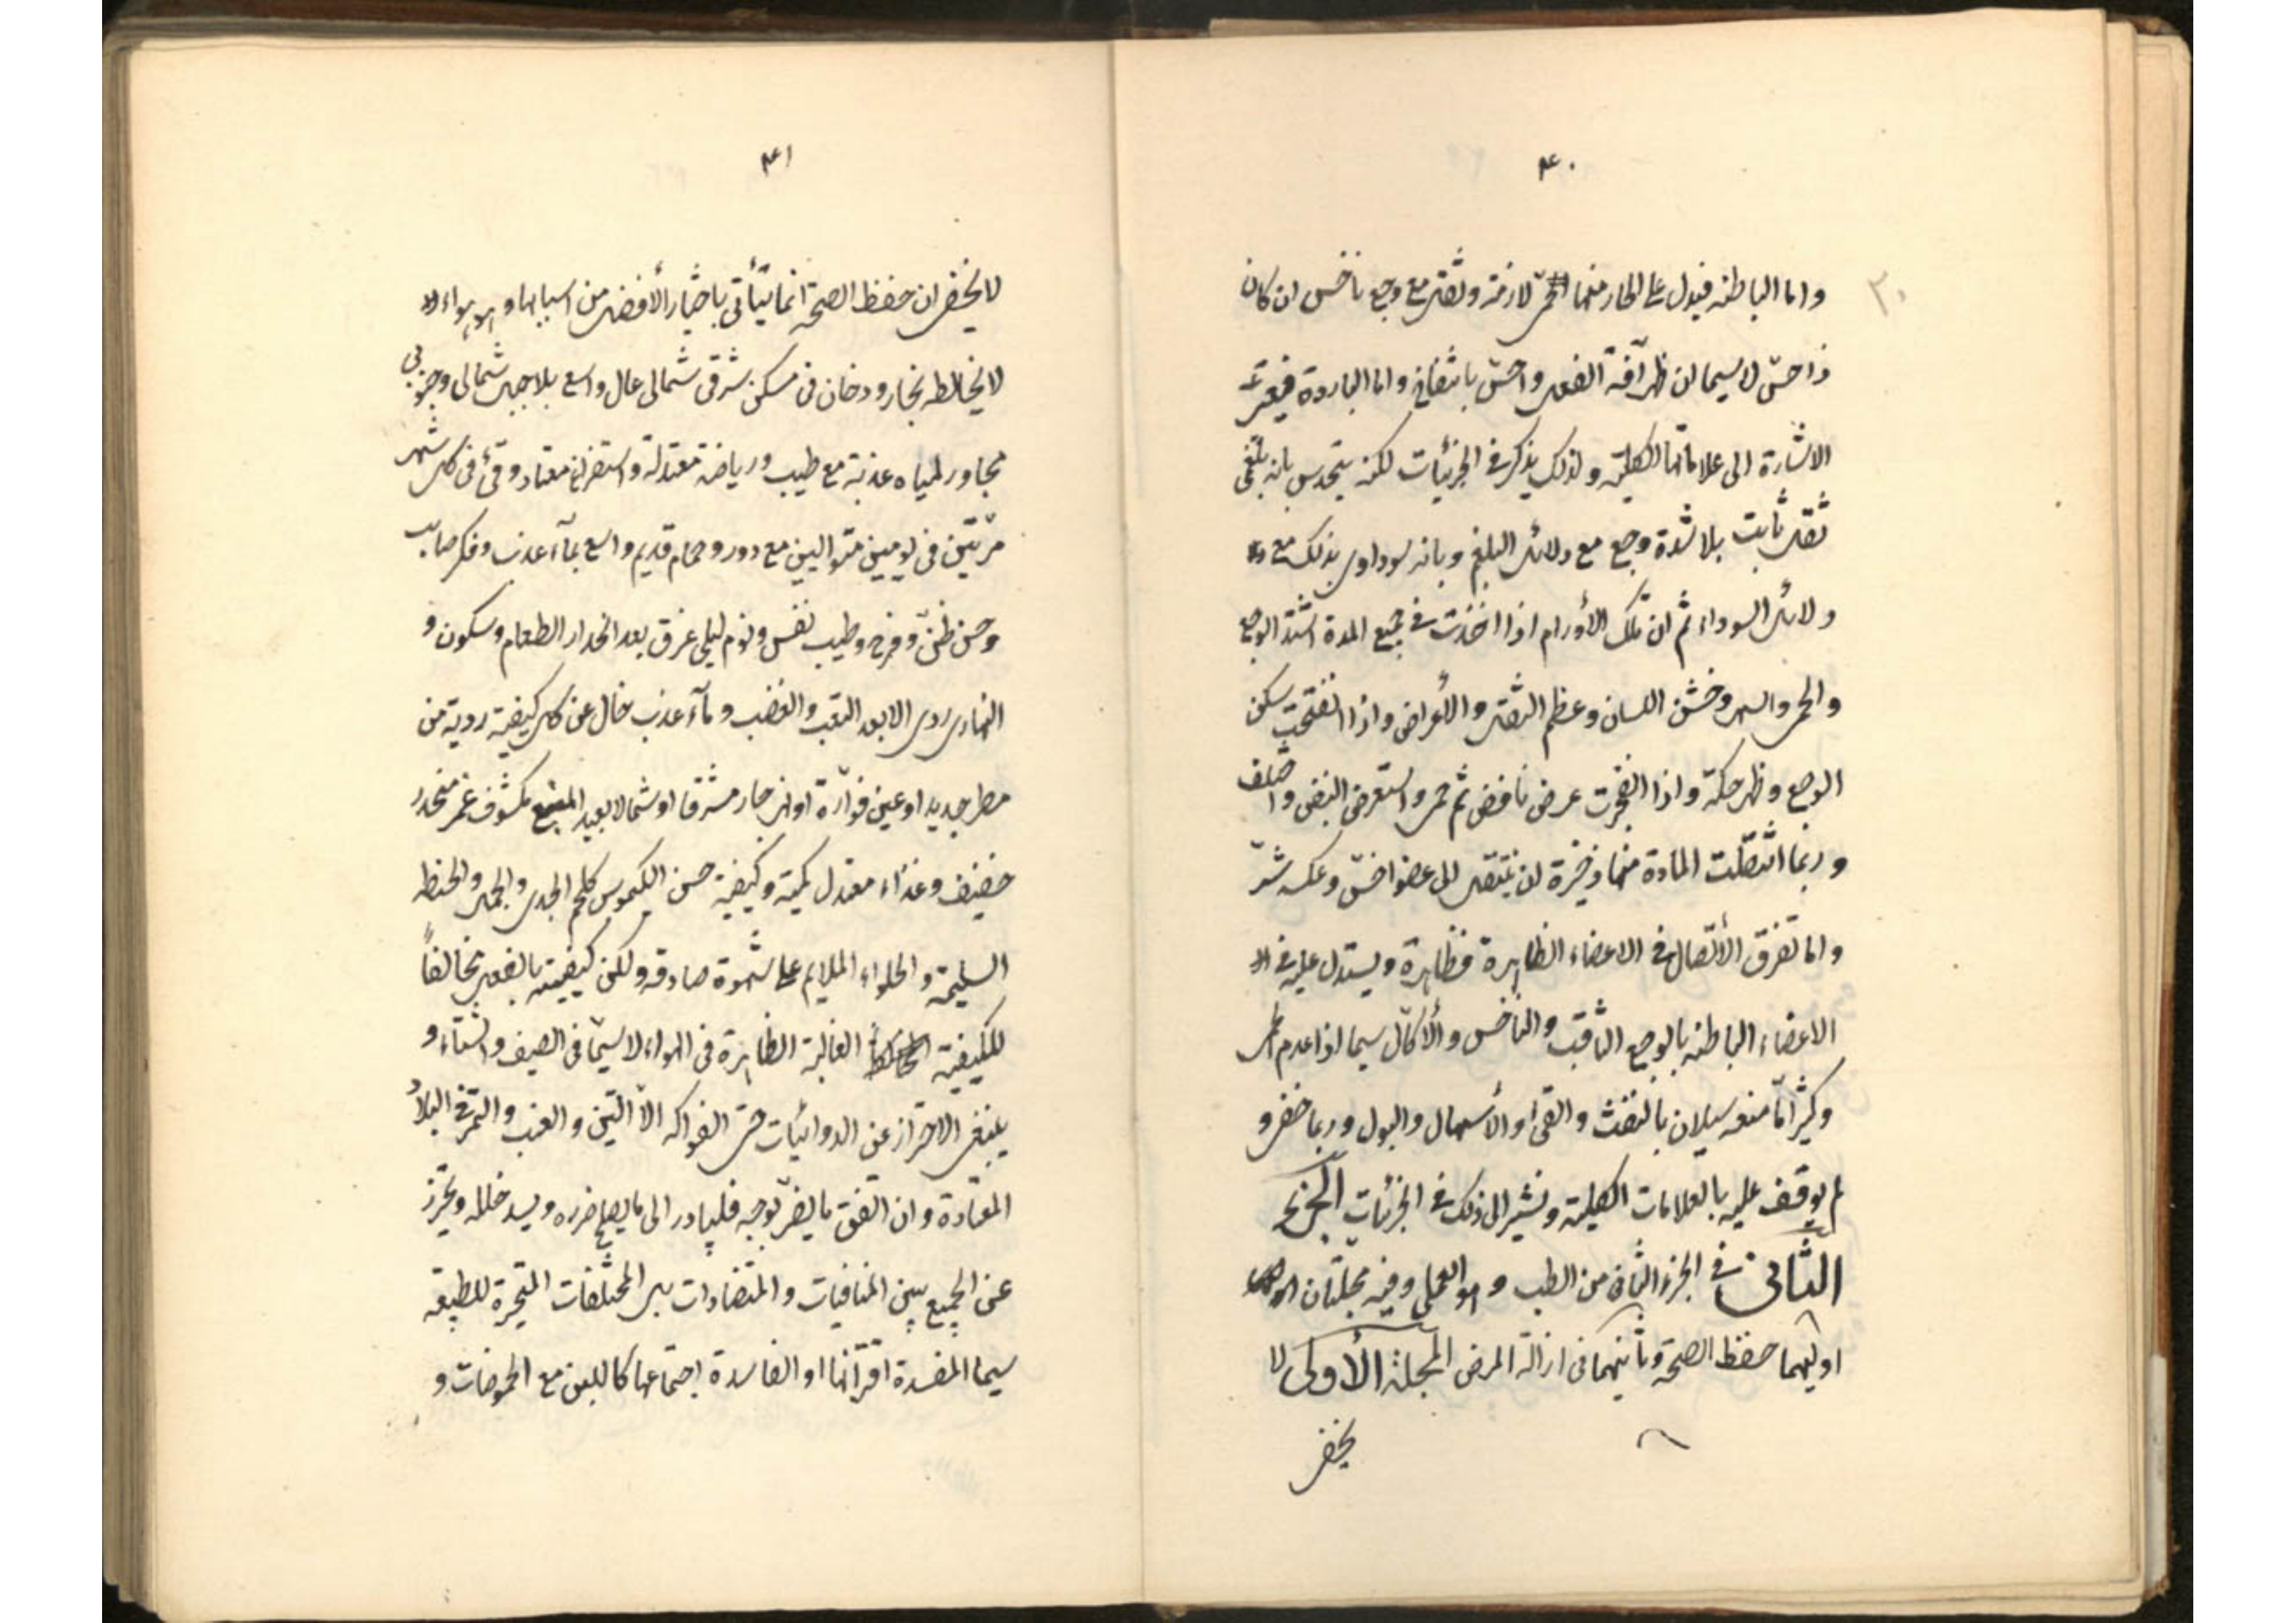 ٤٠
٣٠
واما الباطنه فيدل على الحار منها حمى لازمة وثقل مع وجع ناخس ان كان
ذا حس لا سيما ان ظهر آفة الفعل واحس بانتفاخ واما الباردة فيعز
الاشارة الى علاماتها الكلية ولذلك يذكر في الجزئيات لكنه يتحدس بانه بلغمى
ثقل ثابت بلا شدة وجع مع دلائل البلغم وبانه سوداوى بذلك مع
دلائل السوداء ثم ان تلك الأورام اذا اخذت في جمع المدة اشتد الوجع
والحمى والسهر وخشن اللسان وعظم الثقل والأعراض واذا انفتحت سكن
الوجع وظهر حكة واذا انفجرت عرض نافض ثم حمى واستعرض النبض واختلف
وربما انتقلت المادة منها وخيره ان ينتقل الى عضو اخس وعكسه شر
واما تفرق الأتصال في الاعضاء الظاهرة فظاهرة ويستدل عليه في
الاعضاء الباطنه بالوجع الثاقب والناخس والأكال سيما اذا عدم الحمى
وكثيرا ما معه سيلان بالنفث والقئ او الأسهال والبول وربما خفى و
لم يوقف عليه بالعلامات الكلية ونشير الى ذلك في الجزئيات
الثانى في الجزء الثانى من الطب وهو العملى وفيه مجلتان
اوليهما حفظ الصحة وثانيهما في ازالة المرض المجلة الأولى لا
يخفى
٤١
لا يخفى ان حفظ الصحة انما يتأتى باختيار الأفضل من اسبابها و
لا يخالطه بخار ودخان فى مسكن شرقى شمالى عال واسع بلا جبل شمالى وجنوبى
مجاور لمياه عذبة مع طيب ورياضة معتدلة واستفراغ معتاد وقئ فى كل شهر
مرتين فى يومين متواليين مع دور وحمام قديم واسع بمآء عذب وفكر صايب
وحسن ظن وفرح وطيب نفس ونوم ليلى غرق بعد انحدار الطعام وسكون و
النهارى ردى الا بعد التعب والغضب ومآء عذب خال عن كل كيفية ردية من
مطر جديد او عين فوارة او نهر جار مشرقا او شمالا بعيد المنبع مكشوف غمر منحدر
خفيف وغذاء معتدل كمية وكيفية حسن الكيموس كلحم الجدى والحمل والحنطه
السليمة والحلواء الملايم على شهوة صادقه ولكن كيفيته بالفعل مخالفاً
للكيفية الغالبة الظاهرة فى الهواء لا سيما فى الصيف والشتاء و
ينبغى الاحتراز عن الدوائيات حتى الفواكه الا التين والعنب والتمر في البلاد
المعتادة وان اتفق ما يضر بوجه فليبادر الى ما يصلح ضرره ويسد خلله ويحترز
عن الجمع بين المنافيات والمتضادات بل المختلفات المتحيرة للطبيعة
سيما المفسدة اقترانها او الفاسدة اجتماعها كاللبن مع الحموضات و